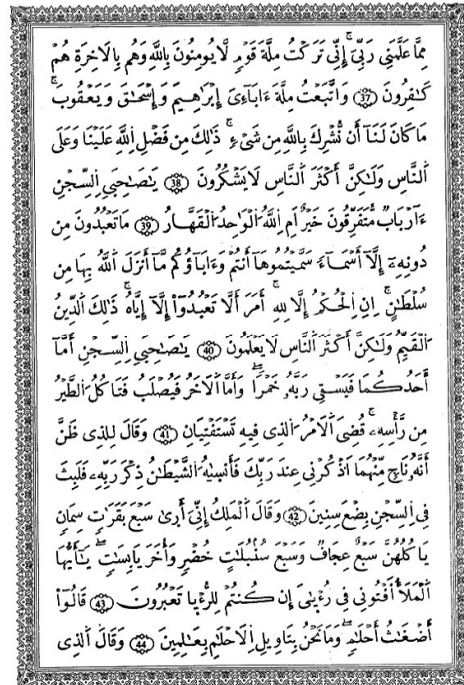 مِمَّا عَلَّمَنِى رَبِّىَ إِنِّى تَرَكْتُ مِلَّةَ قَوْمٍ لَّا يُومِنُونَ بِاللَّهِ وَهُم بِالَاخِرَةِ هُمْ
كَٰفِرُونَ 37 وَاتَّبَعْتُ مِلَّةَ ءَابَآءِىَ إِبْرَٰهِيمَ وَإِسْحَٰقَ وَيَعْقُوبَ
مَا كَانَ لَنَآ أَن نُّشْرِكَ بِاللَّهِ مِن شَىْءٍ ذَٰلِكَ مِن فَضْلِ اللَّهِ عَلَيْنَا وَعَلَى
اَلنَّاسِ وَلَٰكِنَّ أَكْثَرَ اَلنَّاسِ لَا يَشْكُرُونَ 38 يَٰصَٰحِبَىِ اِلسِّجْنِ
ءَآرْبَابٌ مُّتَفَرِّقُونَ خَيْرٌ أَمِ اِللَّهُ اُلْوَٰحِدُ اُلْقَهَّارُ 39 مَا تَعْبُدُونَ مِن
دُونِهِۦٓ إِلَّآ أَسْمَآءً سَمَّيْتُمُوهَآ أَنتُمْ وَءَابَآؤُكُم مَّآ أَنزَلَ اَللَّهُ بِهَا مِن
سُلْطَٰنٍ اِنِ اِلْحُكْمُ إِلَّا لِلهِ أَمَرَ أَلَّا تَعْبُدُوٓاْ إِلَّآ إِيَّاهُ ذَٰلِكَ اَلدِّينُ
اُلْقَيِّمُ وَلَٰكِنَّ أَكْثَرَ اَلنَّاسِ لَا يَعْلَمُونَ 40 يَٰصَٰحِبَىِ اِلسِّجْنِ أَمَّآ
أَحَدُكُمَا فَيَسْقِى رَبَّهُۥ خَمْرًا وَأَمَّا اَلَاخَرُ فَيُصْلَبُ فَتَاكُلُ اُلطَّيْرُ
مِن رَّأْسِهِۦ قُضِىَ اَلَامْرُ اُلَّذِى فِيهِ تَسْتَفْتِيَٰنِ 41 وَقَالَ لِلَّذِى ظَنَّ
أَنَّهُۥ نَاجٍ مِّنْهُمَا اَذْكُرْنِى عِندَ رَبِّكَ فَأَنسَىٰهُ اُلشَّيْطَٰنُ ذِكْرَ رَبِّهِۦ فَلَبِثَ
فِى اِلسِّجْنِ بِضْعَ سِنِينَ 42 وَقَالَ اَلْمَلِكُ إِنِّىَ أَرَىٰ سَبْعَ بَقَرَٰتٍ سِمَانٍ
يَاكُلُهُنَّ سَبْعٌ عِجَافٌ وَسَبْعَ سُنۢبُلَٰتٍ خُضْرٍ وَأُخَرَ يَابِسَٰتٍ يَٰٓأَيُّهَا
اَلْمَلَأُ اَفْتُونِى فِى رُءْيَٰىَ إِن كُنتُمْ لِلرُّءْيَا تَعْبُرُونَ 43 قَالُوٓاْ
أَضْغَٰثُ أَحْلَٰمٍ وَمَا نَحْنُ بِتَاوِيلِ اِلَاحْلَٰمِ بِعَٰلِمِينَ 44 وَقَالَ اَلَّذِى